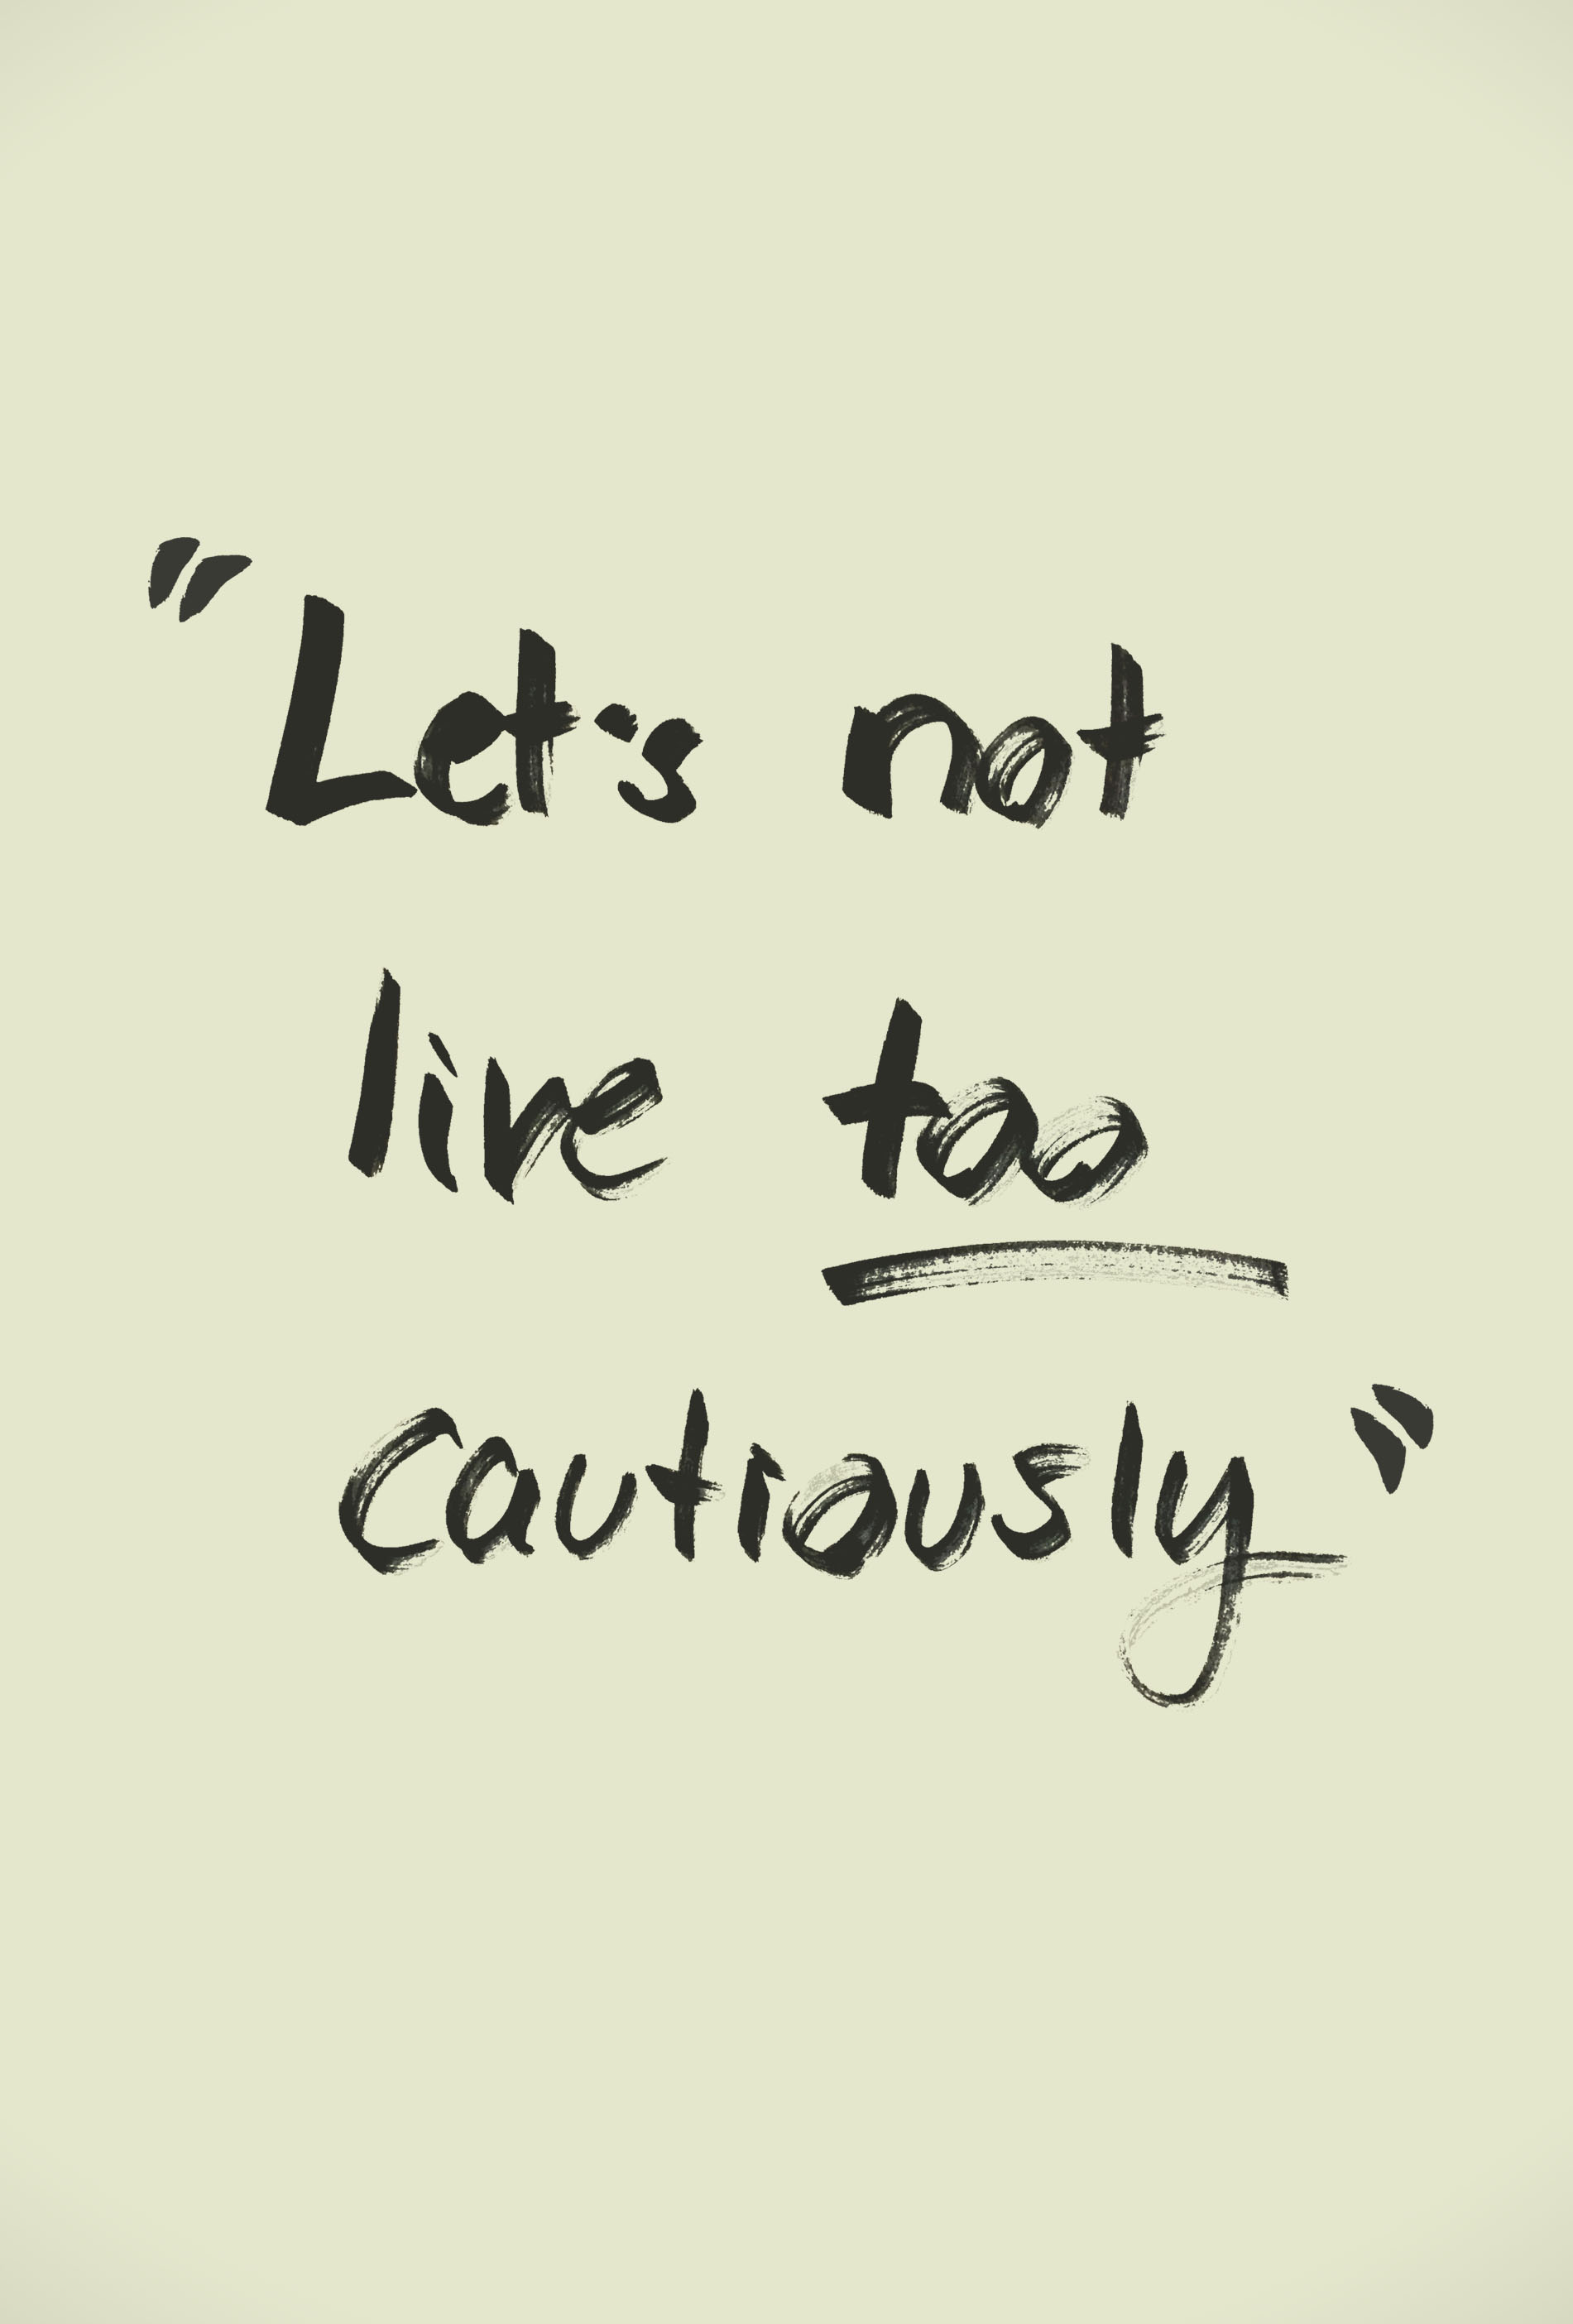 "Let's not
live too
cautiously"